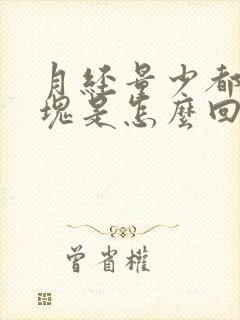 月经量少都
塊是怎麼回
曾省權